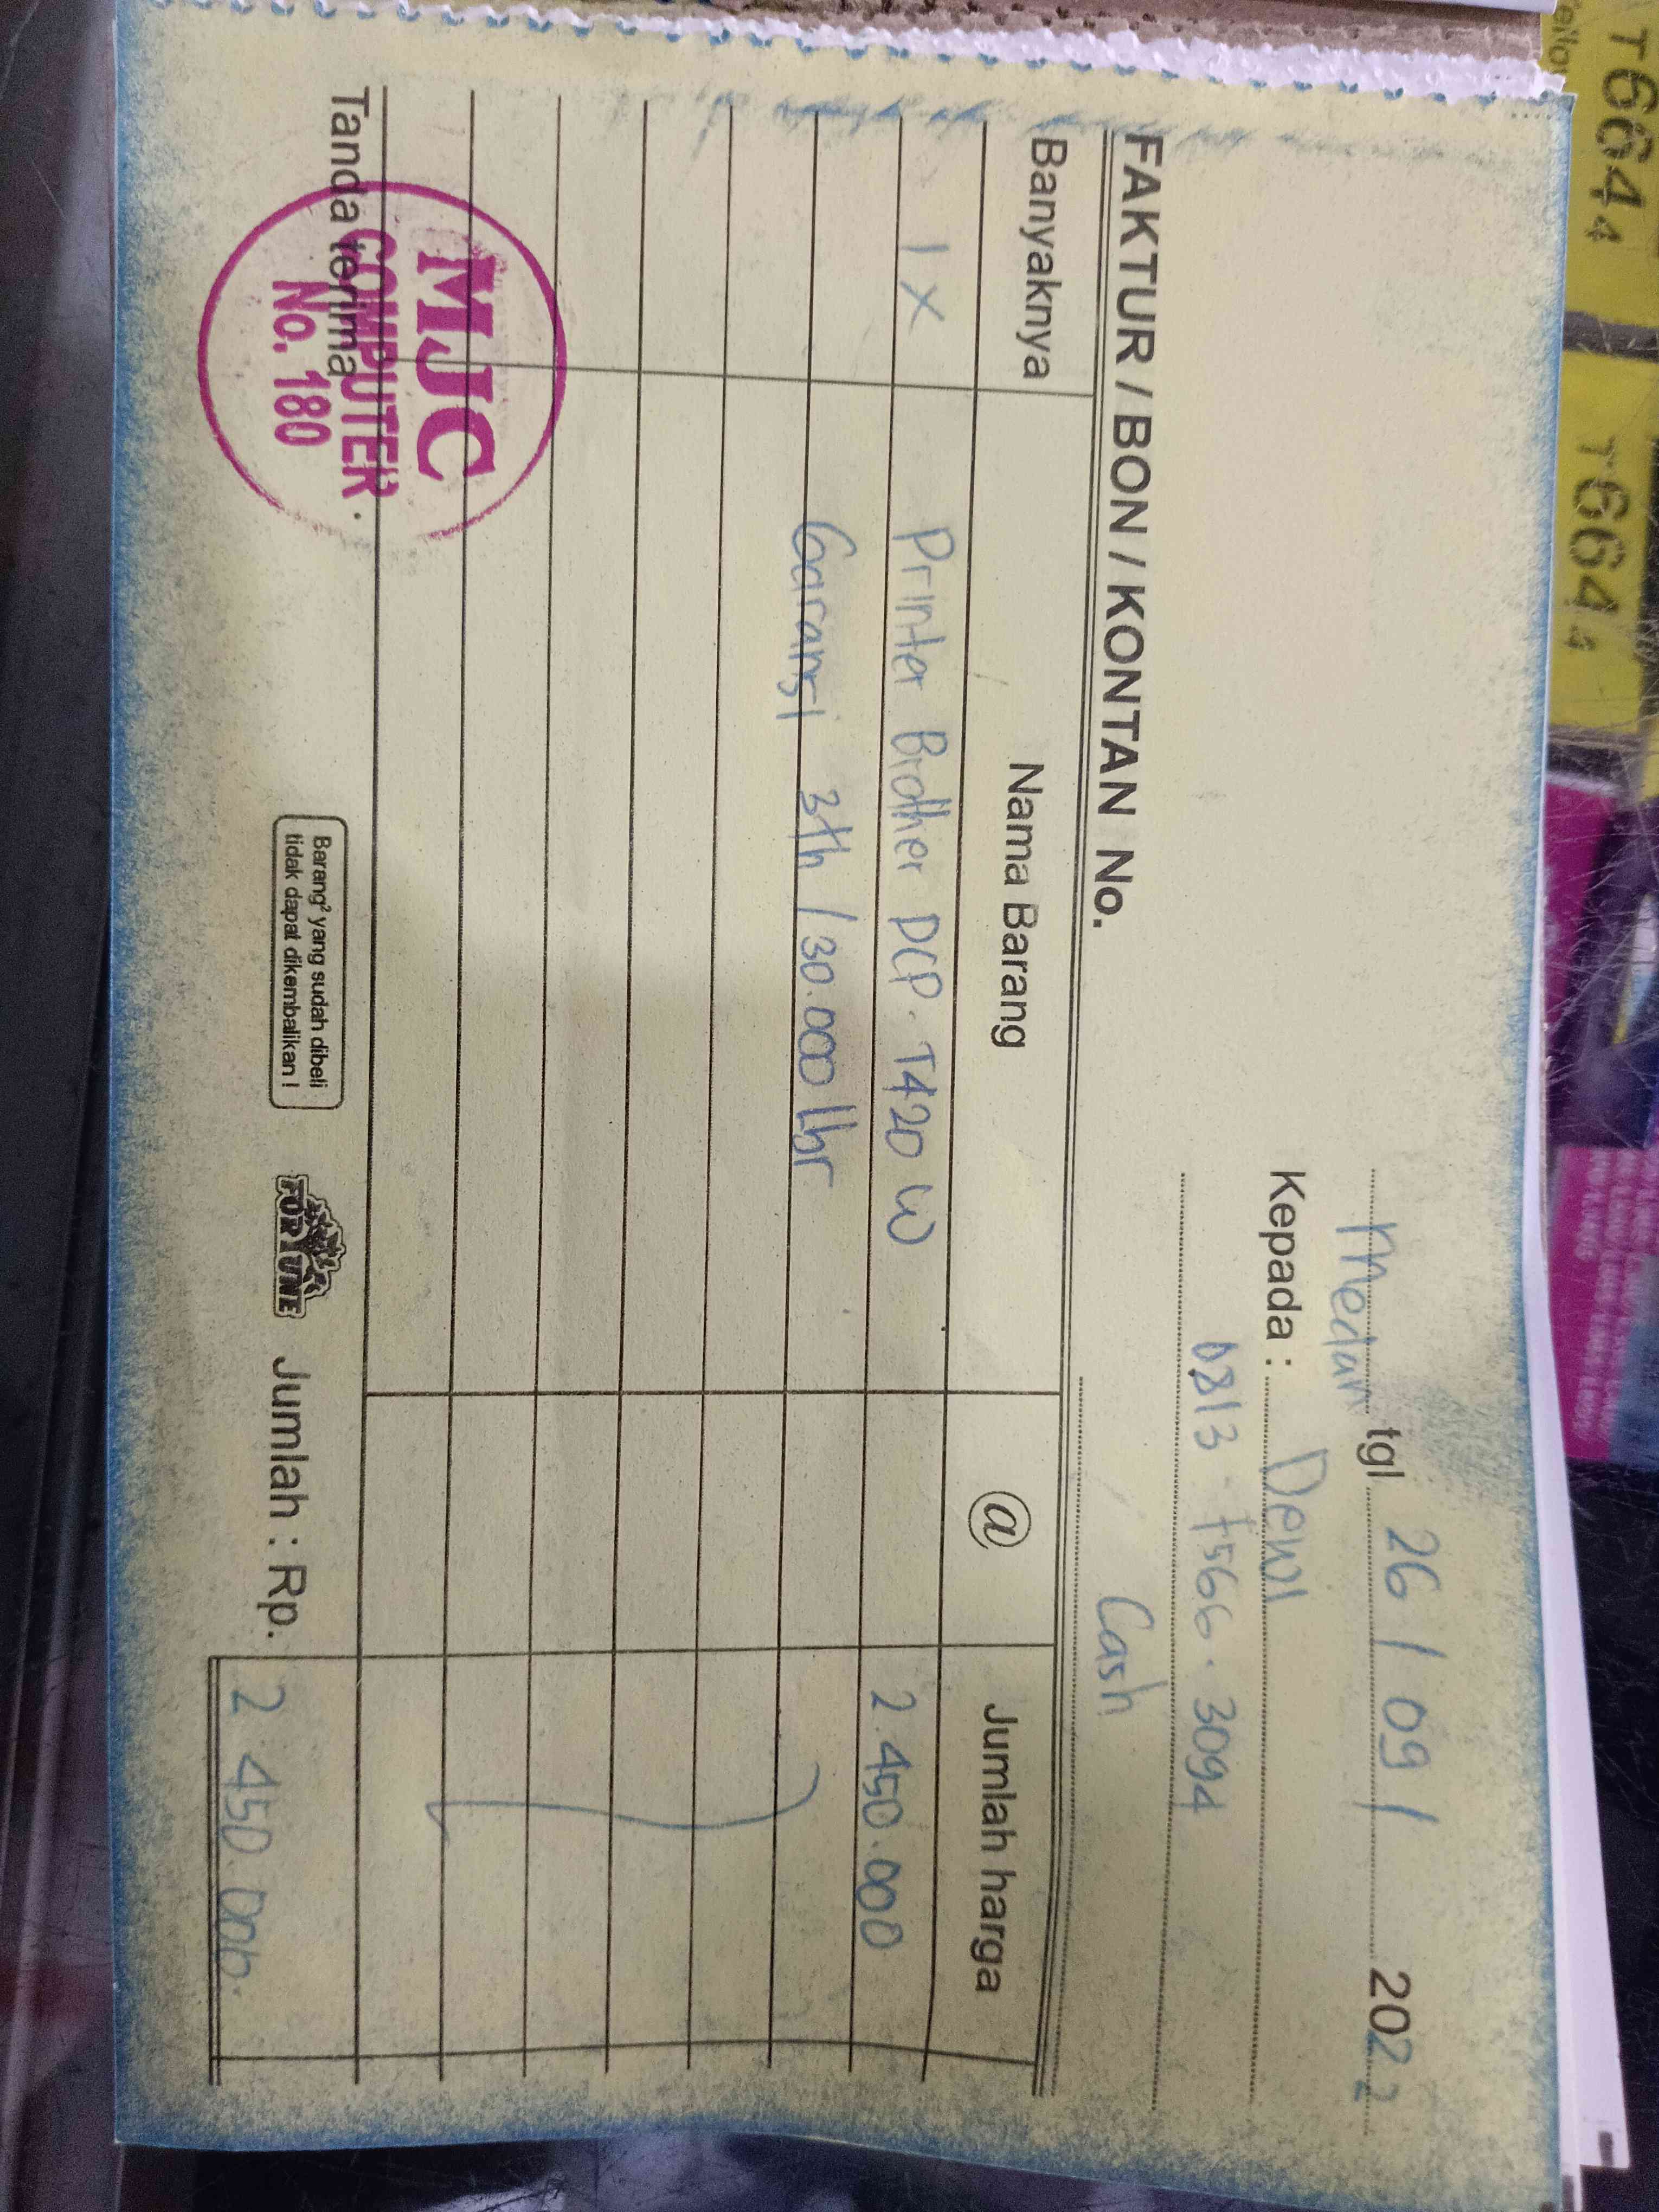 Medan tgl 26/09/ 2022
Kepada : Dewi
0813 7566.3094
Cash
FAKTUR / BON / KONTAN No.
Banyaknya Nama Barang @ Jumlah harga
1 X Printer Brother DCP. T420 W 2.450.000
Garansi 3th / 30.000 lbr
Tanda terima
MJC
COMPUTER
No. 180
Barang² yang sudah dibeli
tidak dapat dikembalikan !
FORTUNE
Jumlah : Rp. 2.450.000.
T6644
T6644